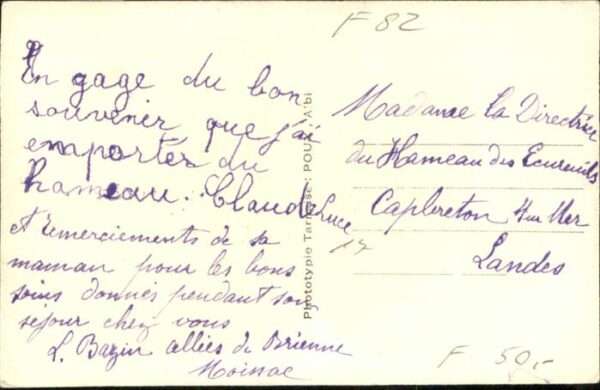 F 82
En gage du bon
souvenir que j'ai
emporter du
hameau. Claude
et remerciements de sa
maman pour les bons
soins donnés pendant son
séjour chez vous
L. Bazin allées de Brienne
Moissac
Phototypie Tarnaise: POUX
Madame La Directrice
du Hameau des Ecureuils
Capbreton sur Mer
Landes
F 50,-